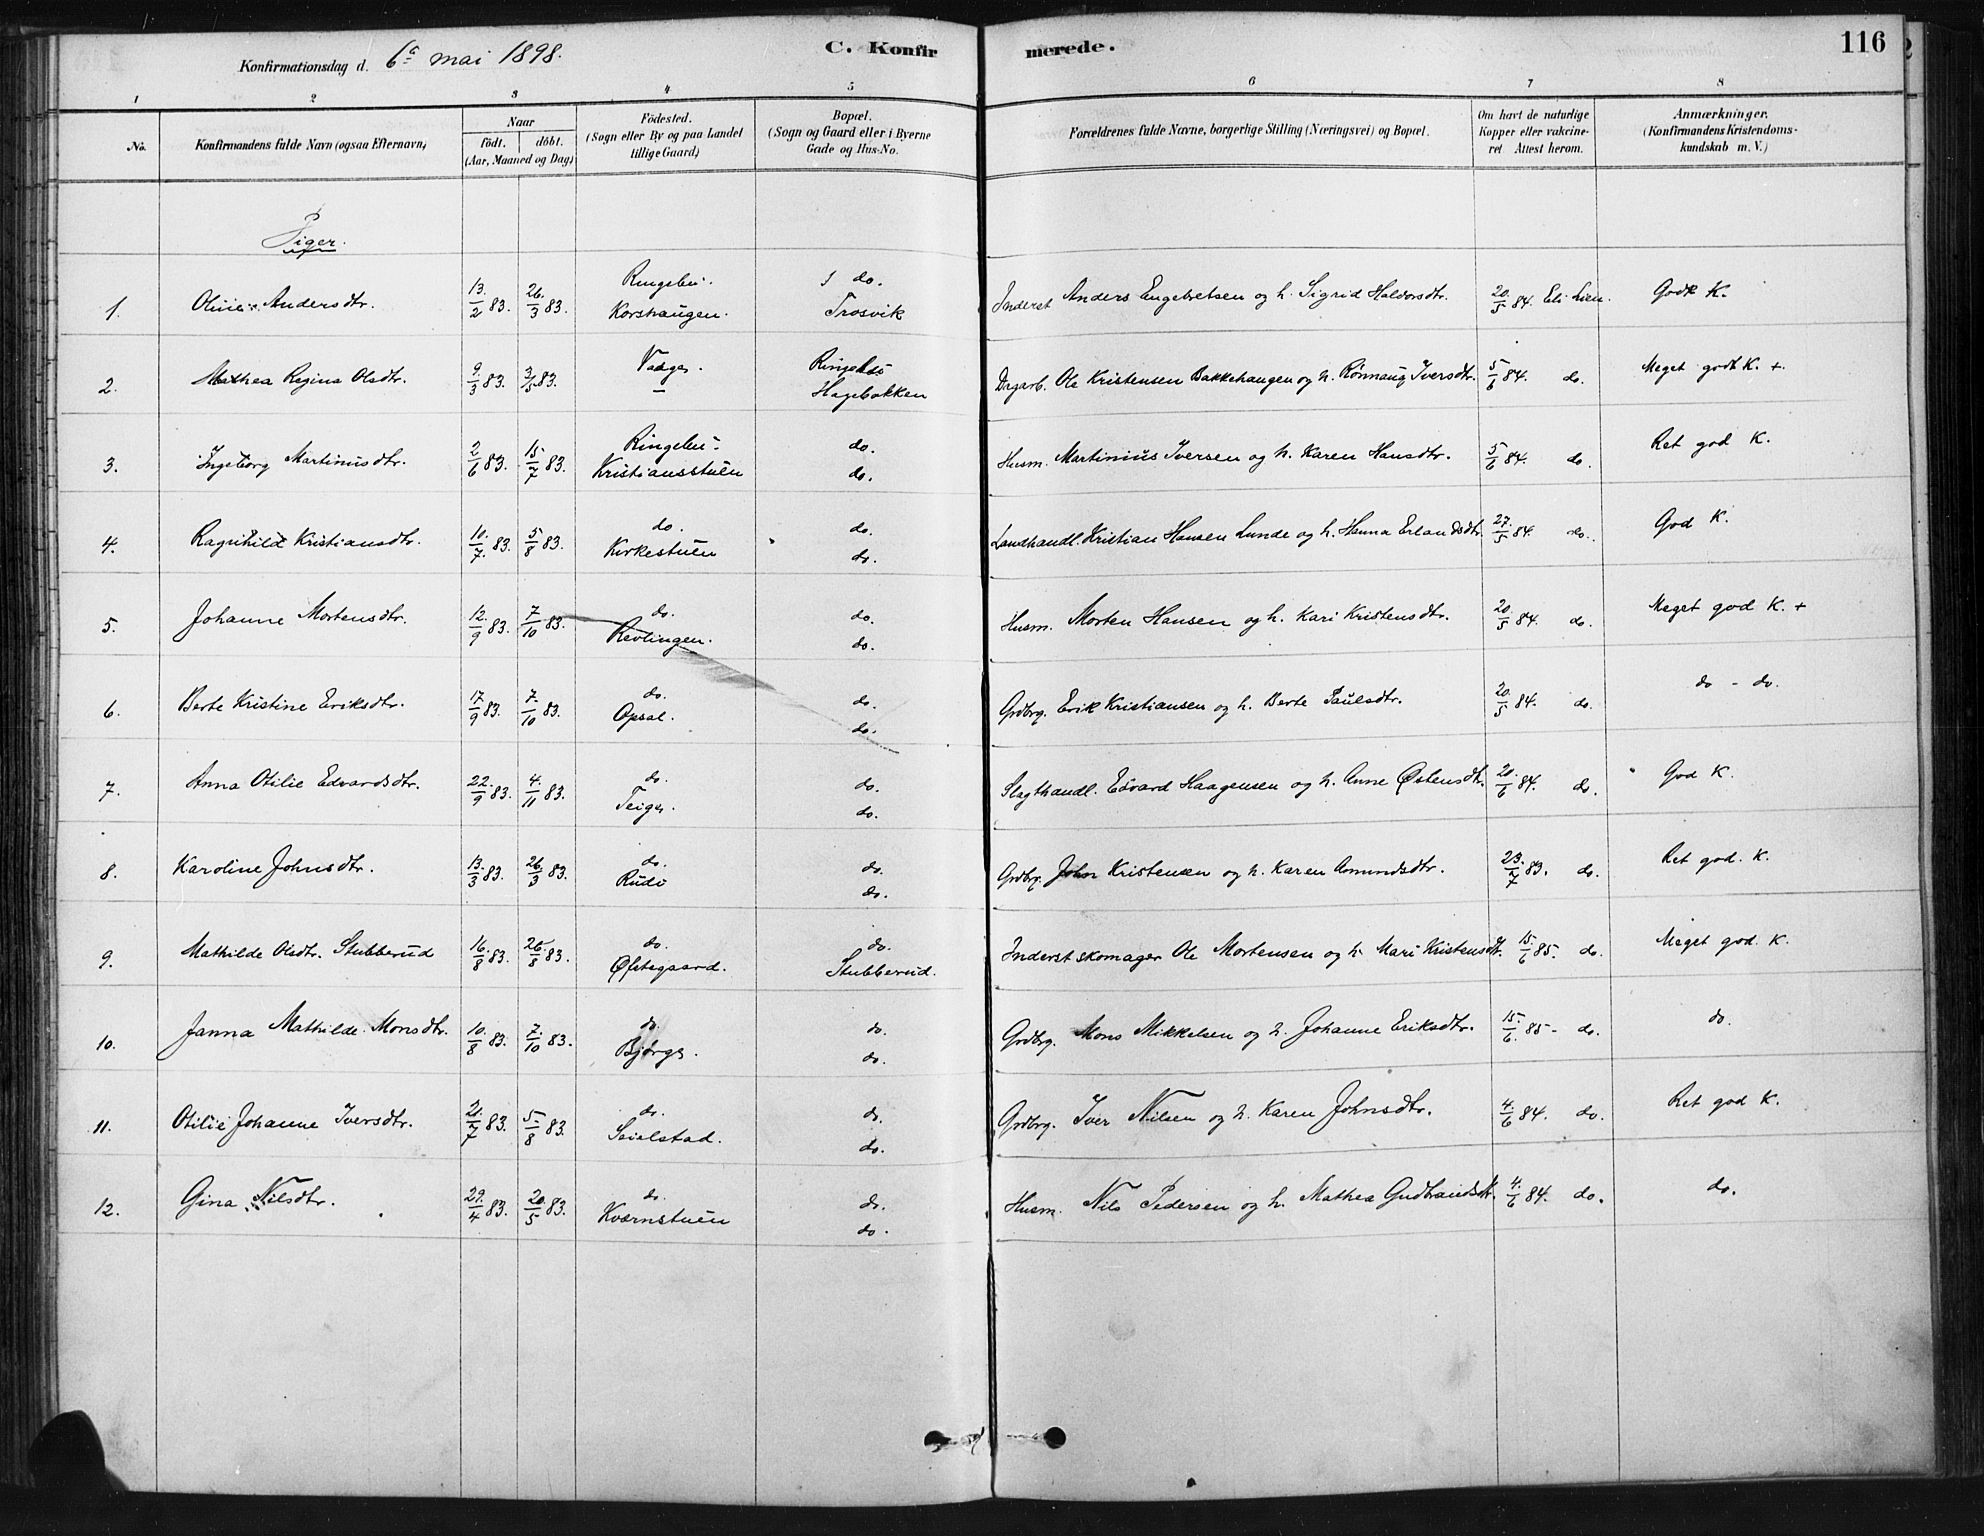 Konfirmationsdag d. 6te mai 1898. C. Konfirmerede. 116
1 2 3 4 5 6 7 8
No. Konfirmandens fulde Navn (ogsaa Efternavn) Naar födt. döbt. (Aar, Maaned og Dag) Födested. (Sogn eller By og paa Landet tillige Gaard) Bopæl. (Sogn og Gaard eller i Byerne Gade og Hus-No. Forældrenes fulde Navne, borgerlige Stilling (Næringsvei) og Bopæl. Om havt de naturlige Kopper eller vakcineret Attest herom. Anmærkninger. (Konfirmandens Kristendomskundskab m. V.)
Piger.
1. Andersdtr. 13/2 83. 26/3 83. Ringebu. Korshaugen. do. Trosvik Inderst Anders Engebretsen og h. Sigrid Haldorsdtr. 20/5 84. Eli Lien. Godt K.
2. Mathea Regina Olsdtr. 9/3 83. 3/5 83. Vaage. — Ringebu Hagebakken Dagarb. Ole Kristensen Bakkehaugen og h. Rönnaug Iversdtr. 5/6 84. do. Meget godt K. +
3. Ingeborg Martinusdtr. 2/6 83. 15/7 83. Ringebu Kristiansstuen do. do. Husm. Martinius Iversen og h. Karen Hansdtr. 5/6 84. do. Ret god K.
4. Ragnhild Kristiansdtr. 10/7 83. 5/8 83. do. Kirkestuen do. do. Landhandl. Kristian Hansen Lunde og h. Hanna Erlandsdtr. 27/5 84. do. God K.
5. Johanne Mortensdtr. 12/9 83. 7/10 83. do. Revlingen. do. do. Husm. Morten Hansen og h. Kari Kristensdtr. 20/5 84. do. Meget god K. +
6. Berte Kristine Eriksdtr. 17/9 83. 7/10 83. do. Opsal. do. do. Grdbrg. Erik Kristiansen og h. Berte Paulsdtr. 20/5 84. do. do - do.
7. Anna Otilie Edvardsdtr. 22/9 83. 4/11 83. do. Teige. do. do. Slagthandl. Edvard Haagensen og h. Anne Østensdtr. 20/6 84. do. God K.
8. Karoline Johnsdtr. 13/3 83. 26/3 83. do. Rudi do. do. Grdbrg. John Kristensen og h. Karen Amundsdtr. 23/7 83. do. Ret god. K.
9. Mathilde Olsdtr. Stubberud 16/8 83. 26/8 83. do. Øfstegaard. do. Stubberud. Inderst skomager Ole Mortensen og h. Mari Kristensdtr. 15/6 85. do. Meget god. K.
10. Janna Mathilde Monsdtr. 10/8 83. 7/10 83. do. Bjørge. do. do. Grdbrg. Mons Mikkelsen og h. Johanne Eriksdtr. 15/6 85 - do. do.
11. Otilie Johanne Iversdtr. 21/7 83. 5/8 83. do. Seielstad. do. do. Grdbrg. Iver Nilsen og h. Karen Johnsdtr. 4/6 84. do. Ret god K.
12. Gina Nilsdtr. 29/4 83. 20/5 83. do. Kværnstuen do. do. Husm. Nils Pedersen og h. Mathea Gudbrandsdtr. 4/6 84. do. do.